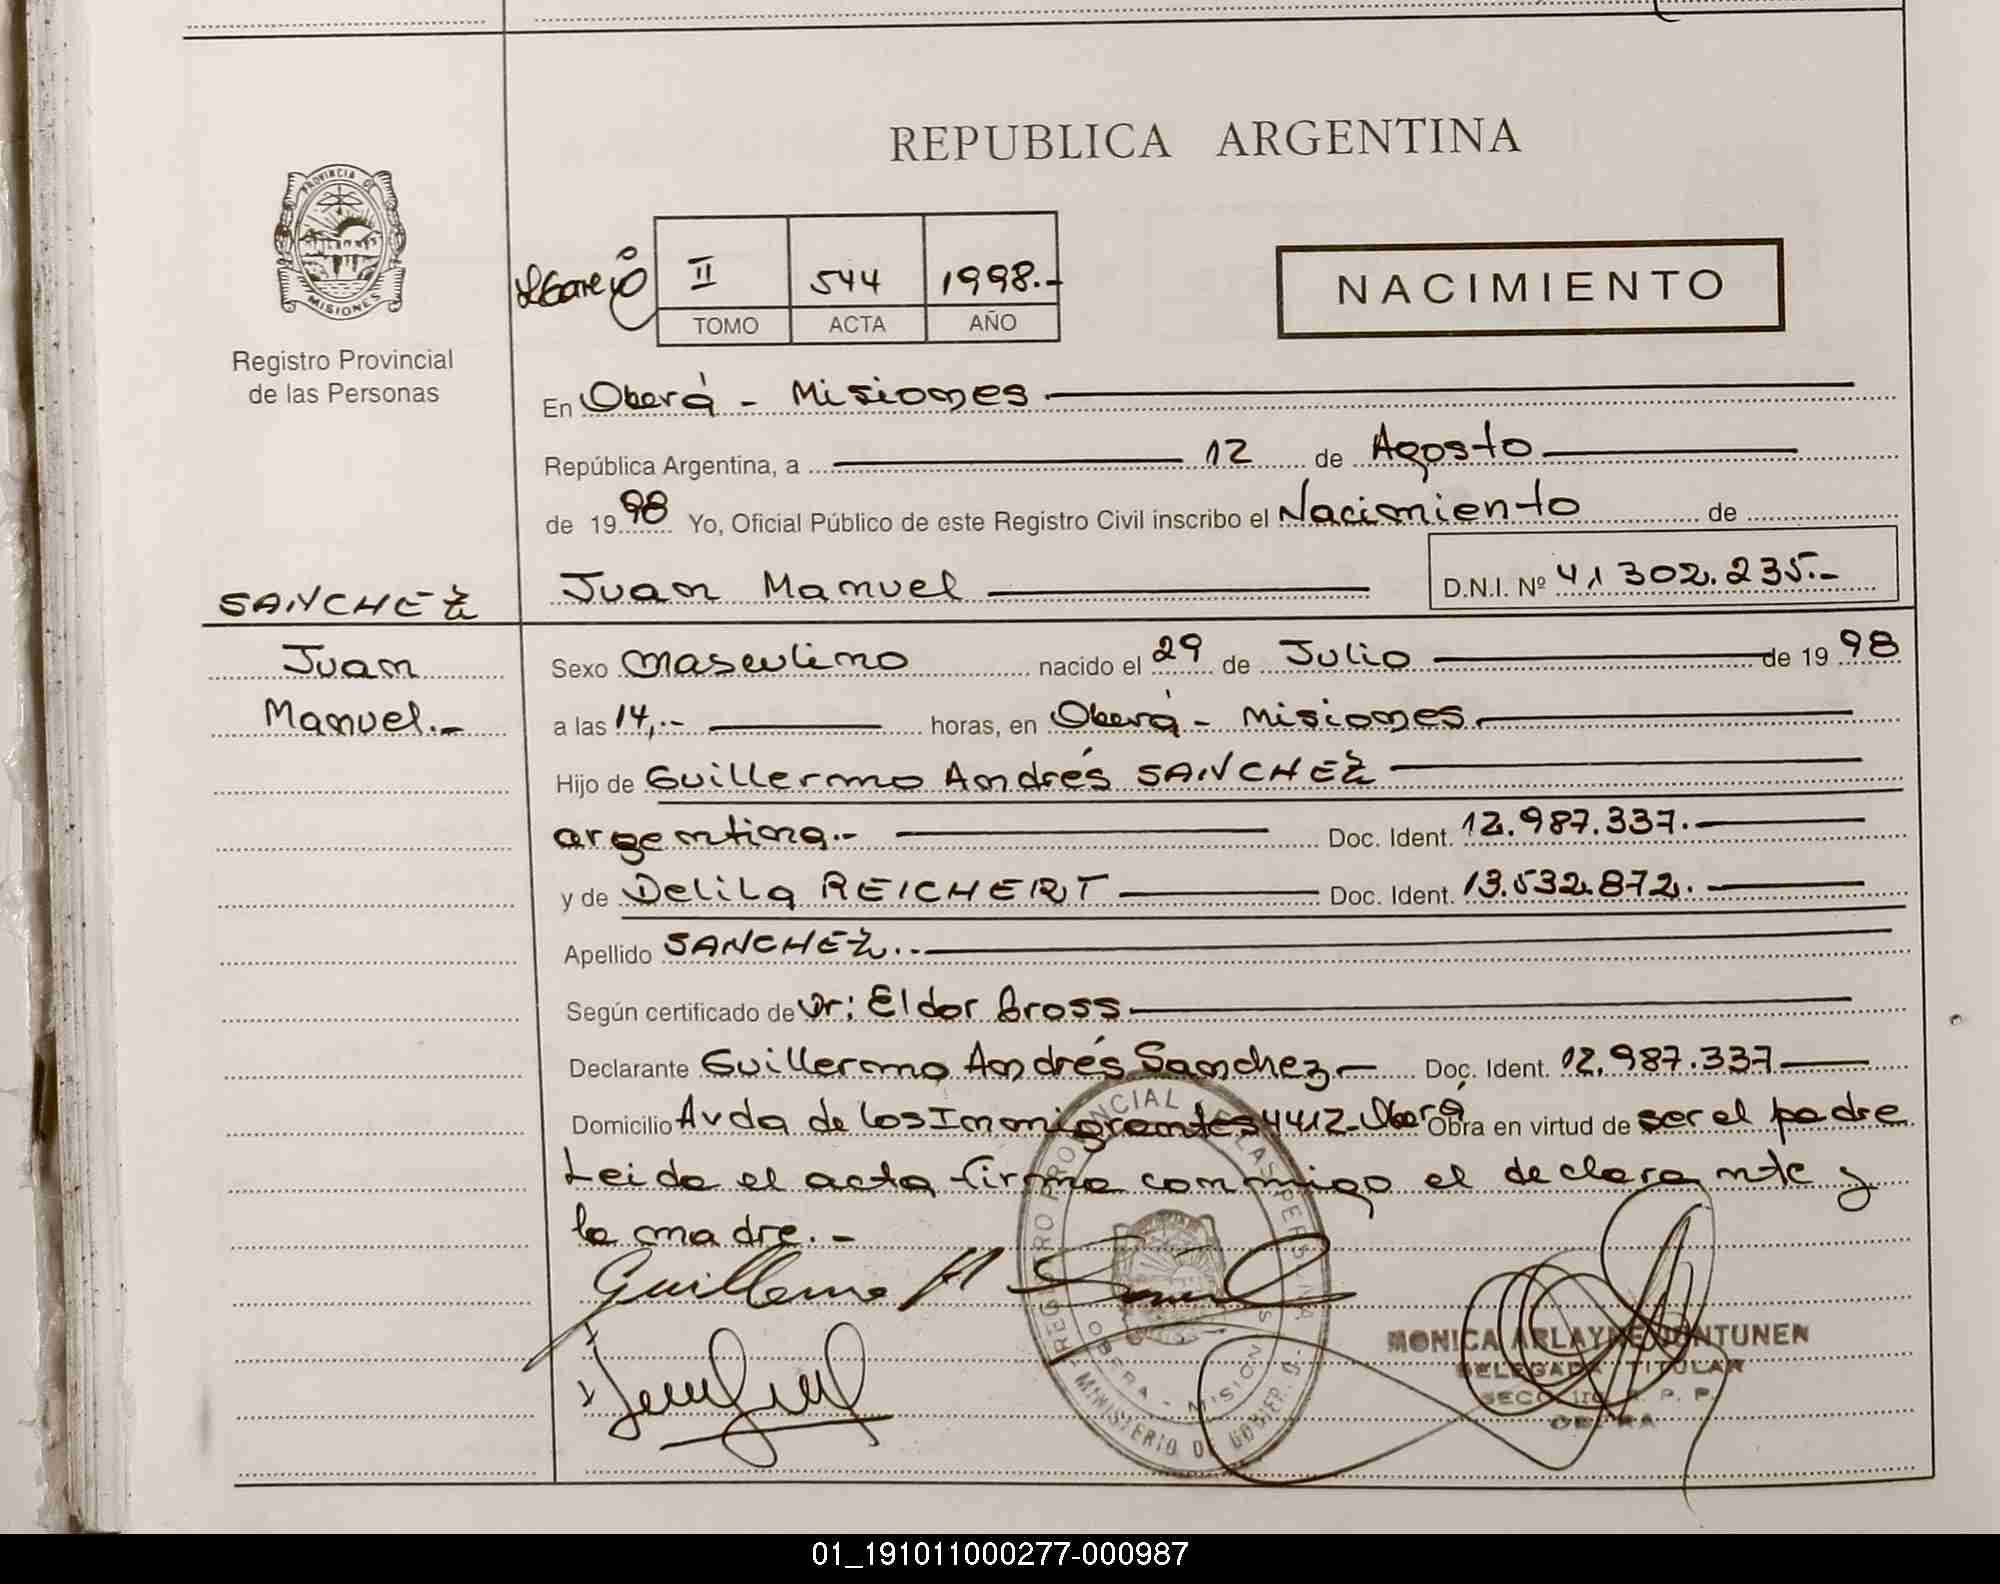 REPUBLICA ARGENTINA
PROVINCIA DE
MISIONES
Registro Provincial
de las Personas
II 544 1998.-
TOMO ACTA AÑO
NACIMIENTO
En Oberá - Misiones
República Argentina, a 12 de Agosto
de 1998 Yo, Oficial Público de este Registro Civil inscribo el Nacimiento de
SANCHEZ Juan Manuel D.N.I. Nº 41302.235.-
Juan Sexo masculino nacido el 29 de Julio de 1998
Manuel.- a las 14,.- horas, en Oberá - Misiones
Hijo de Guillermo Andrés SANCHEZ
argentina.- Doc. Ident. 12.987.337.
y de Delila REICHERT Doc. Ident. 13.532.872.
Apellido SANCHEZ..
Según certificado de Dr: Eldor Gross
Declarante Guillermo Andrés Sanchez Doc. Ident. 12.987.337
Domicilio Avda de los Inmigrantes 4412-Oberá Obra en virtud de ser el padre
Leida el acta firma conmigo el declarante y
la madre.-
Guillermo A
REGISTRO PROVINCIAL DE LAS PERSONAS
OBERA - MISIONES
MINISTERIO DE GOBIER.
MONICA ARLAYNE
DELEGADA TITULAR
SECC. 1ra R. P. P.
OBERA
01_191011000277-000987